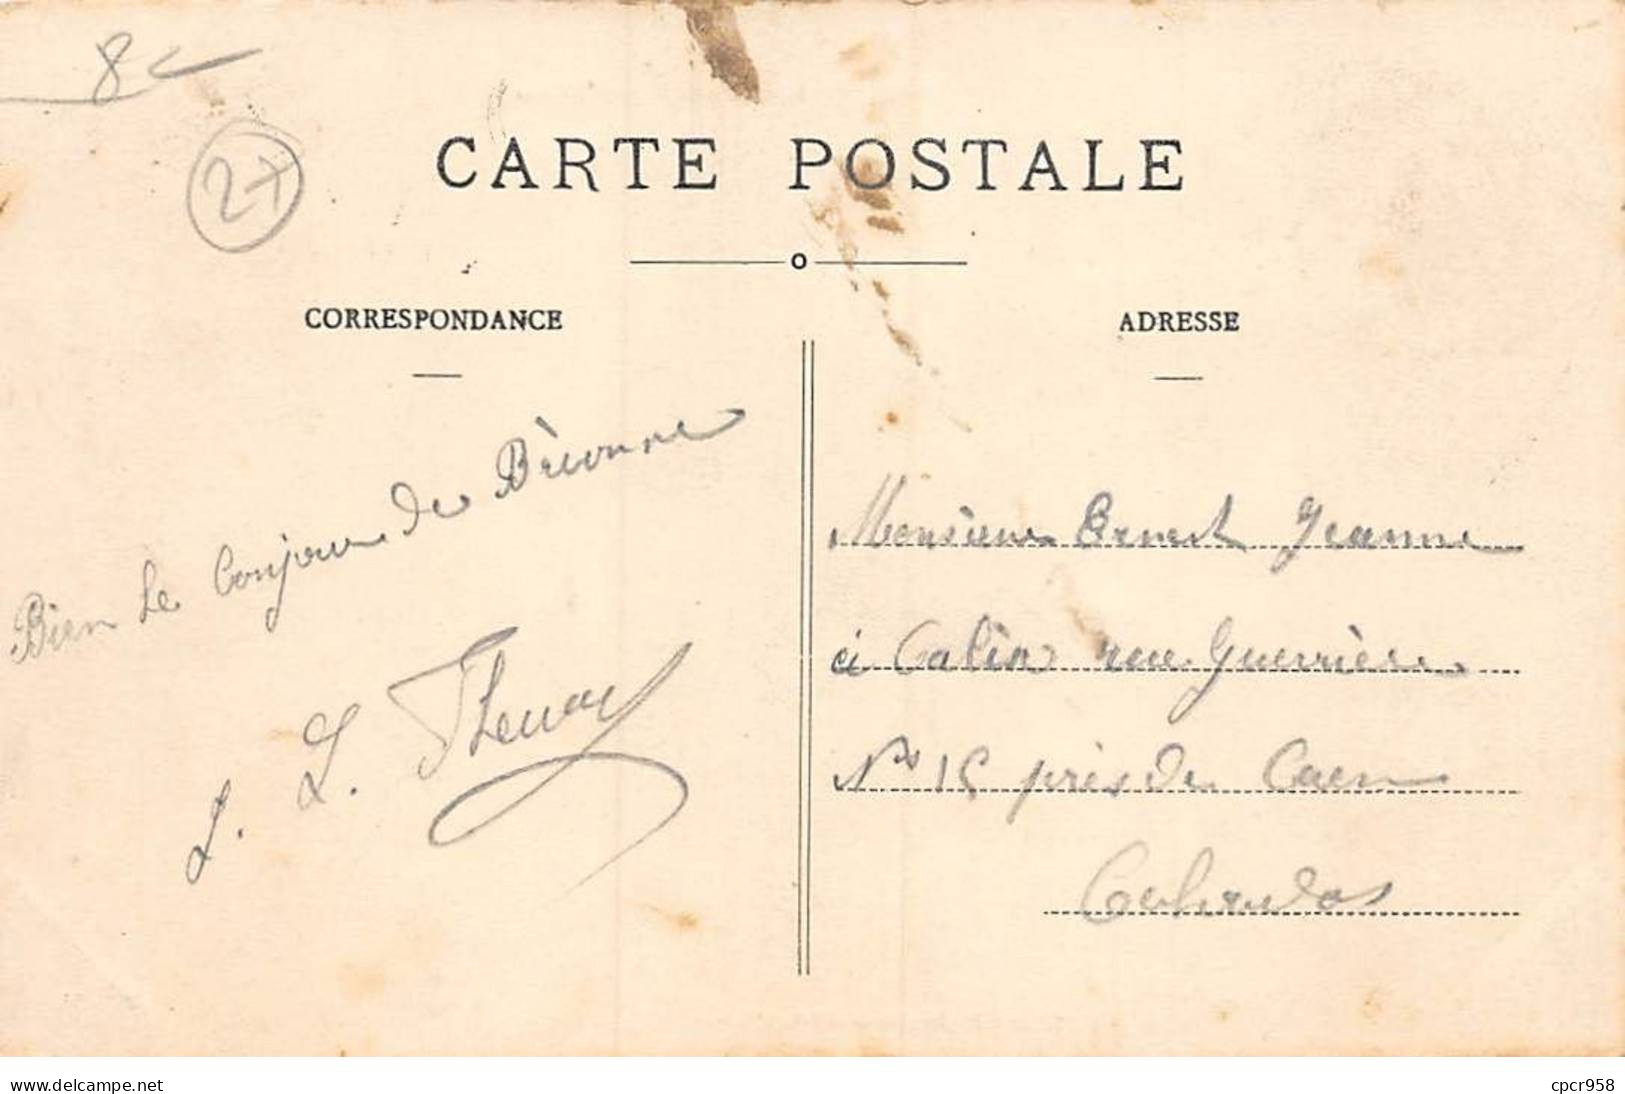 8
27
CARTE POSTALE
CORRESPONDANCE
ADRESSE
Bien le bonjour de Brionne
L. L. Thenay
Monsieur Ernest Jeanne
à Calix rue Guerrière
No 15 près de Caen
Calvados
www.delcampe.net
cpcr958